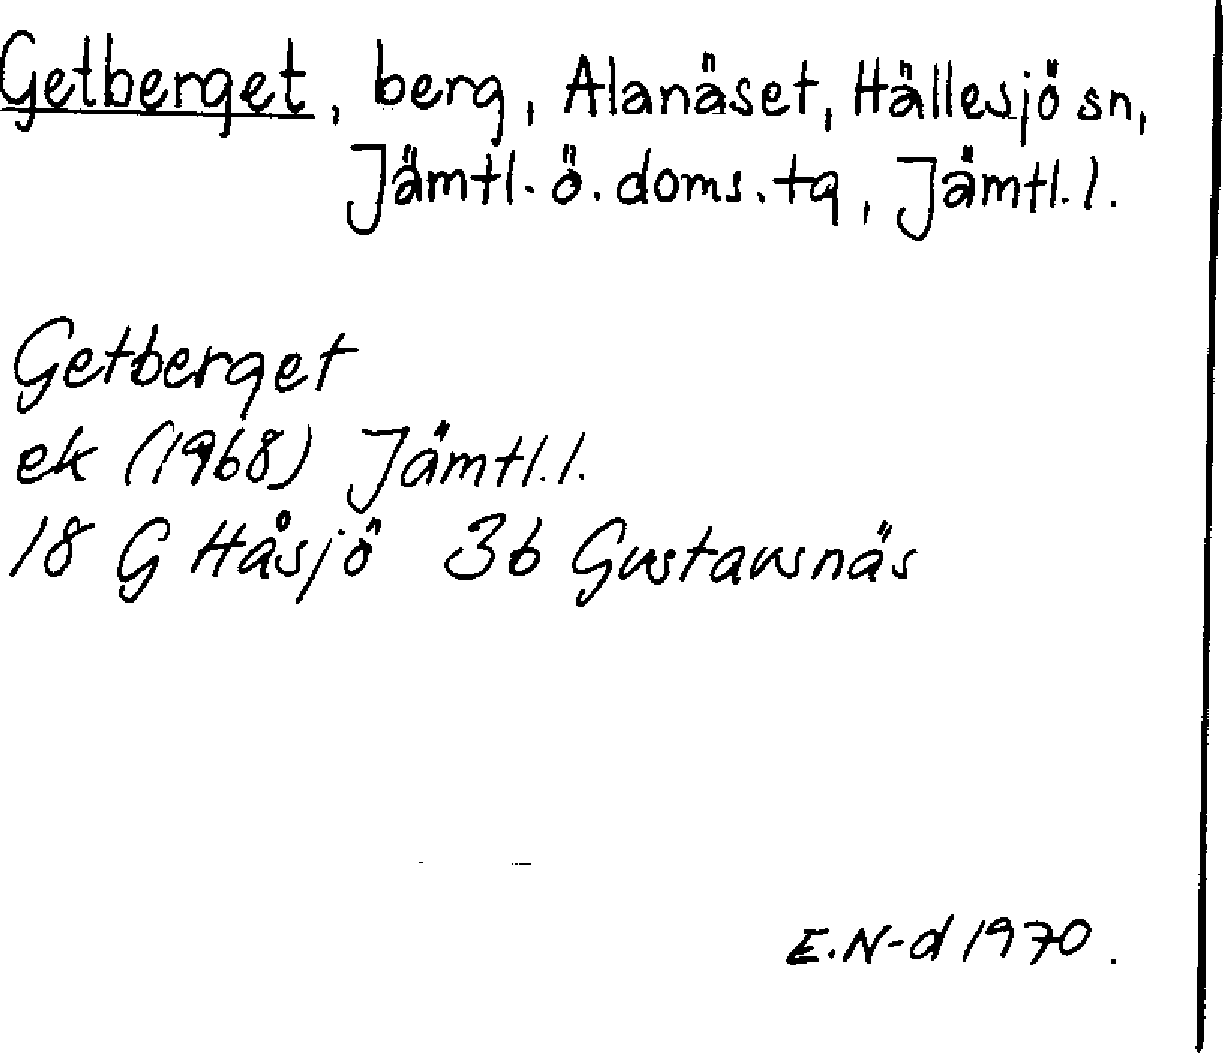 Getberget, berg, Alanäset, Hällesjö sn,
Jämtl. ö. doms. tg, Jämtl. l.
Getberget
ek (1968) Jämtl. l.
18 G Håsjö 3b Gustavsnäs
E.N-d 1970.